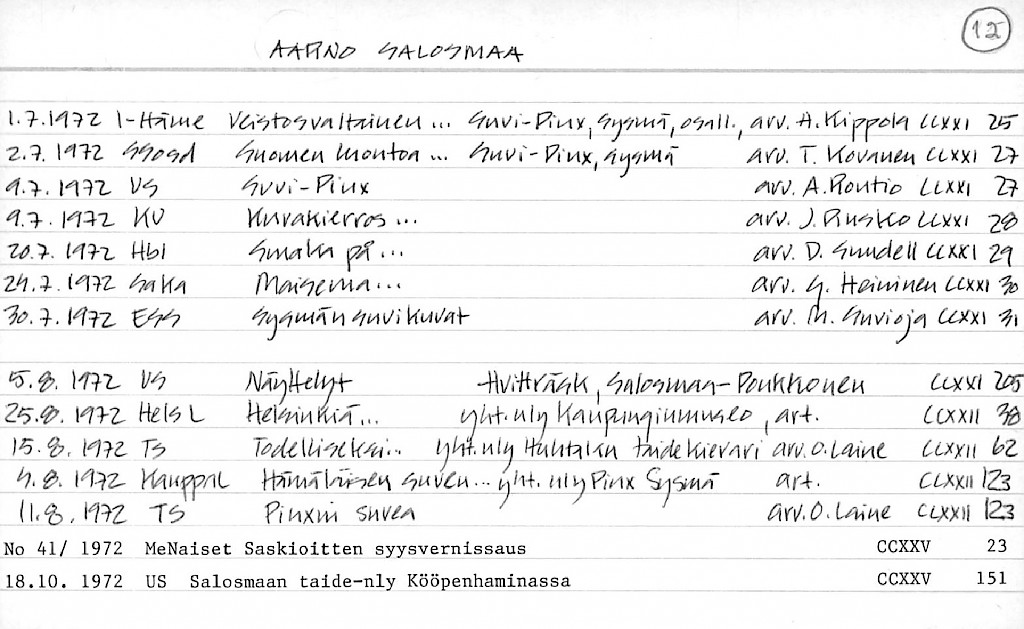 12
AARNO SALOSMAA
1.7.1972 I-Häme Veistosvaltainen... Suvi-Pinx, Sysmä, osall., arv. A. Kippola CCXXI 25
2.7.1972 SSosd Suomen luontoa... Suvi-Pinx, Sysmä arv. T. Kovanen CCXXI 27
9.7.1972 US Suvi-Pinx arv. A. Routio CCXXI 27
9.7.1972 KU Kuvakierros... arv. J. Rusko CCXXI 28
20.7.1972 Hbl Smaka på... arv. D. Sundell CCXXI 29
29.7.1972 SaKa Maisema... arv. G. Heininen CCXXI 30
30.7.1972 ESS Sysmän suvikuvat arv. M. Suvioja CCXXI 31
5.8.1972 US Näyttelyt Hvitträsk, Salosmaa-Poukkonen CCXXI 205
25.8.1972 HelsL Helsinkiä... yht.nly Kaupunginmuseo, art. CCXXII 38
15.8.1972 TS Todelliseksi... yht.nly Huhtalan taidekievari arv.O.Laine CCXXII 62
4.8.1972 Kauppal Hämäläisen suven... yht.nly Pinx Sysmä art. CCXXII 123
11.8.1972 TS Pinxin suvea arv.O.Laine CCXXII 123
No 41/ 1972 MeNaiset Saskioitten syysvernissaus CCXXV 23
18.10. 1972 US Salosmaan taide-nly Kööpenhaminassa CCXXV 151